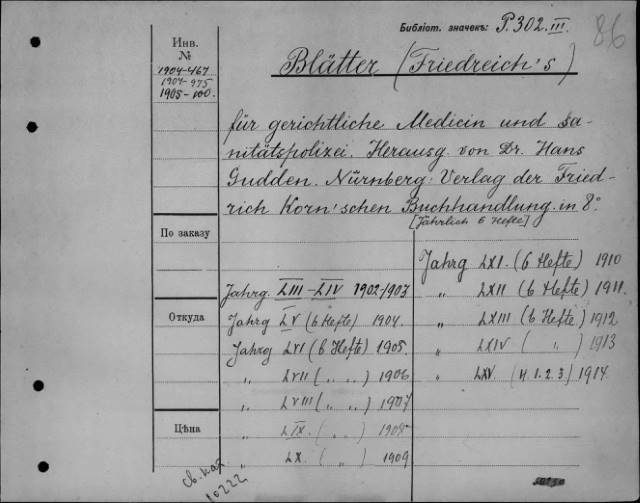 Библіот. значекъ: P. 302. III.
86
Инв.
№
1904-467
1904-975
1905-100.
Blätter (Friedreich's)
für gerichtliche Medicin und Sa-
nitätspolizei. Herausg. von Dr. Hans
Gudden. Nürnberg: Verlag der Fried-
rich Korn'schen Buchhandlung. in 8°
[Jährlich 6 Hefte]
По заказу
Откуда
Цѣна
Jahrg. LIII-LIV 1902-1903
Jahrg LV (6 Hefte) 1904.
Jahrg LVI (6 Hefte) 1905.
„ LVII ( „ „ ) 1906
„ LVIII ( „ „ ) 1907
„ LIX. ( „ ) 1908
„ LX. ( „ ) 1909
Jahrg LXI. (6 Hefte) 1910
„ LXII (6 Hefte) 1911.
„ LXIII (6 Hefte) 1912
„ LXIV ( „ ) 1913
„ LXV. (H. 1. 2. 3) 1914.
Св. кат.
10222